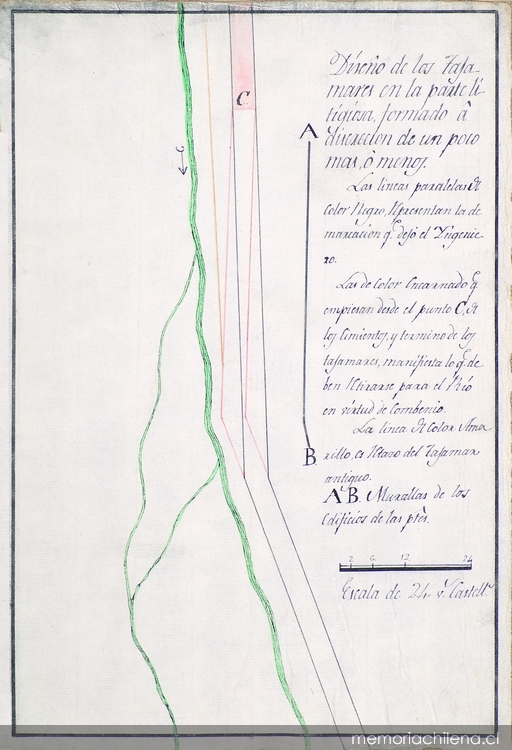 Diseño de los Taja-
mares en la parte li-
tigiosa, formado â
discrecion de un poco
mas, ò menos.
Las lineas paralelas de
Color Negro, representan la de
marcacion q.e dejó el Yngenie-
ro.
Las de Color Encarnado q.e
empiesan desde el punto C, de
los Cimientos, y termino de los
tajamares, manifiesta lo q.e de
ben retirarse, para el Rio
en virtud de Combenio.
La linea de Color Ama
rillo, es el del Tajamar
antiguo.
A B. Murallas de los
Edificios de las ptes.
2 6 12 24
Escala de 24 v.s Castell.s
A
B
C
memoriachilena.cl